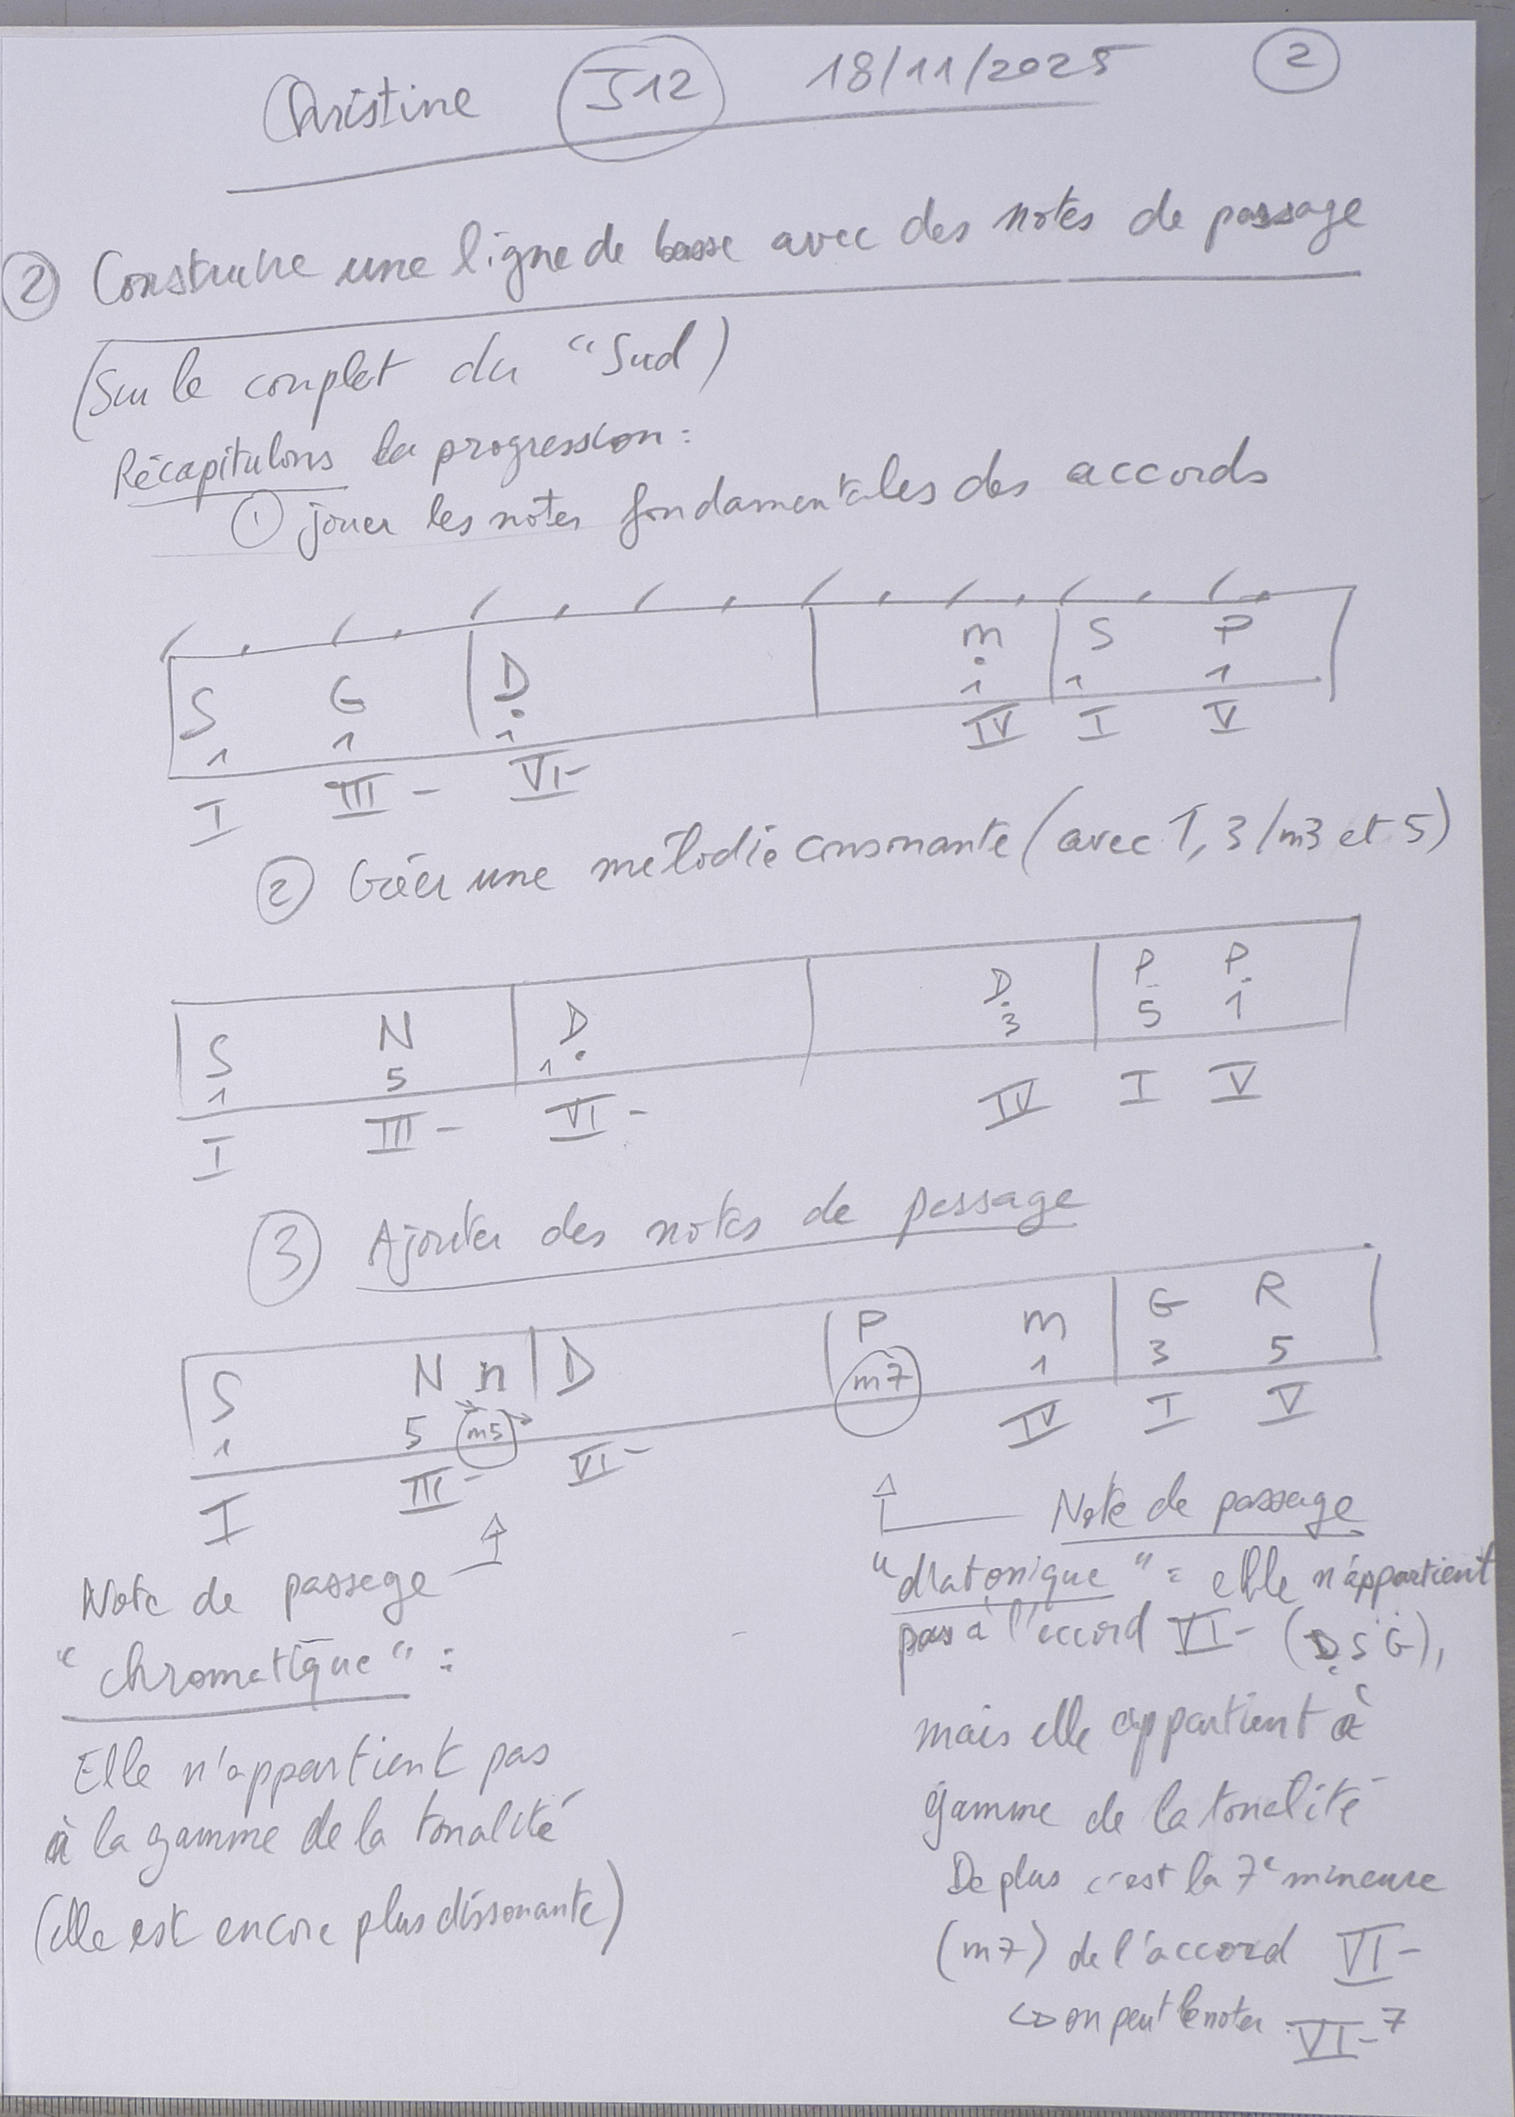 Christine J12 18/11/2025 2
② Construire une ligne de basse avec des notes de passage
(Sur le couplet du "Sud)
Récapitulons la progression :
① jouer les notes fondamentales des accords
S G D m S P
1 1 1 1 1 1
I III- VI- IV I V
② Créer une mélodie consonante (avec 1, 3/m3 et 5)
S N D D P P
1 5 1 3 5 1
I III- VI- IV I V
③ Ajouter des notes de passage
S N n D P m G R
1 5 m5 m7 1 3 5
I III- VI- IV I V
Note de passage
"chromatique" :
Elle n'appartient pas
à la gamme de la tonalité
(elle est encore plus dissonante)
Note de passage
"diatonique" = elle n'appartient
pas à l'accord VI- (D S G),
mais elle appartient à
gamme de la tonalité
De plus c'est la 7e mineure
(m7) de l'accord VI-
↳ on peut le noter : VI-7